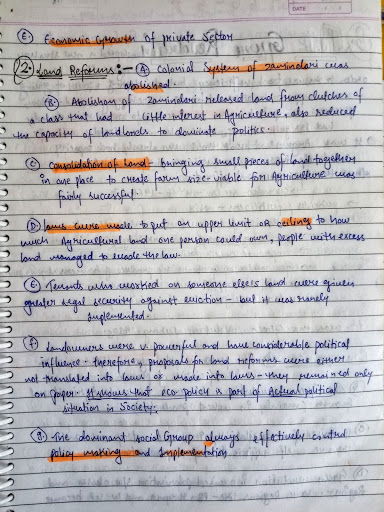 DATE
(E) Economic Growth of private Sector
(2.) Land Reforms :- (A) Colonial System of zamindari was
abolished.
(B) Abolishon of zamindari released land from clutches of
a class that had little interest in Agriculture, also reduced
the capacity of landlords to dominate politics.
(C) Consolidation of Land - bringing small pieces of land together
in one place to create farm size-viable for Agriculture was
fairly successful.
(D) Laws were made to put an upper limit or ceiling to how
much Agricultural land one person could own, people with excess
land managed to evade the law.
(E) Tenants who worked on someone else's land were given
greater legal security against eviction - but it was rarely
implemented.
(f) Landowners were v. powerful and have considerable political
influence. therefore, proposals for land reforms were either
not translated into laws or made into laws - they remained only
on paper. It shows that eco policy is part of Actual political
situation in Society.
(g) The dominant social Group always effectively control
policy making and Implementation